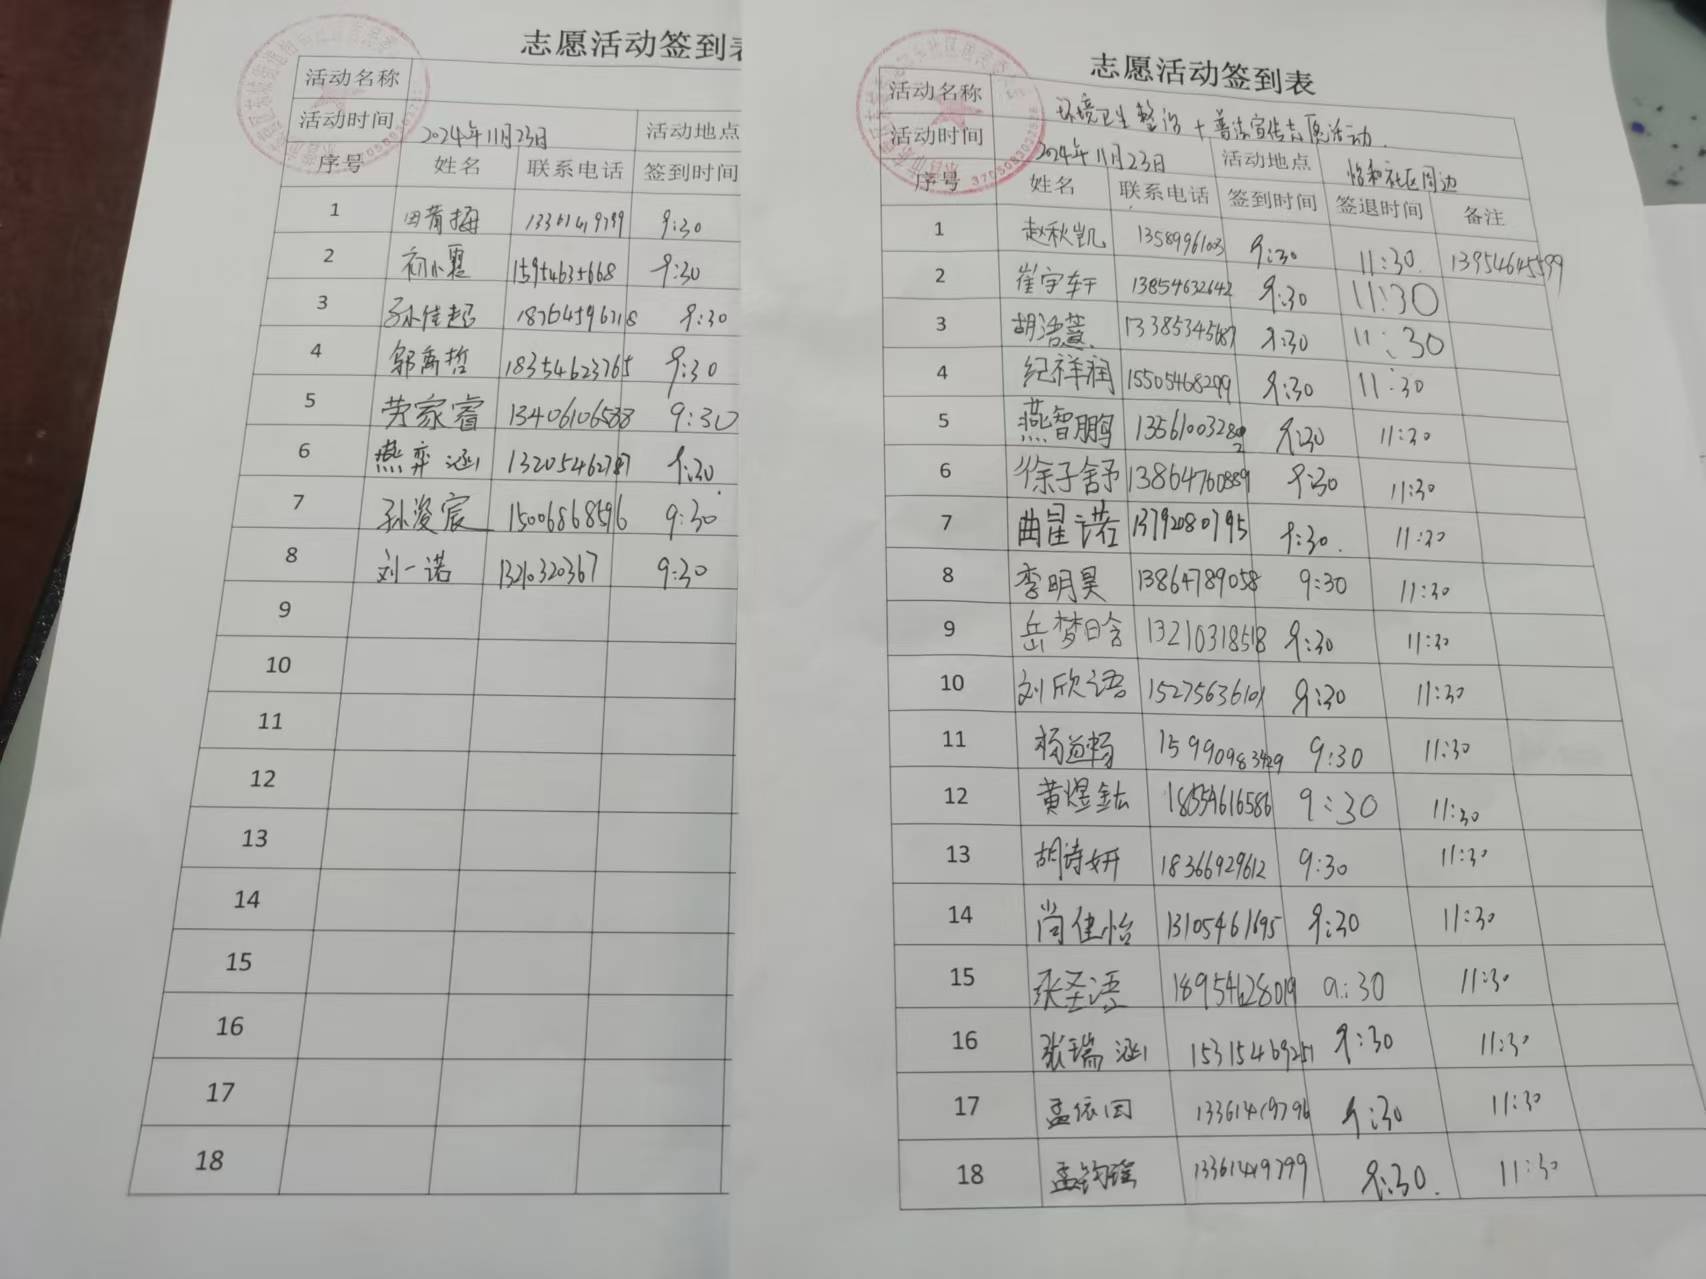 志愿活动签到表
活动名称
活动时间 2024年11月23日 活动地点
序号 姓名 联系电话 签到时间
1 田荷梅 9:30
2 初小惠 15954635668 9:30
3 孙佳起 18764596718 9:30
4 邬禹哲 18354623765 9:30
5 劳家睿 13406106588 9:30
6 燕弈涵 13205462787 9:30
7 孙浚宸 15006868596 9:30
8 刘一诺 1321320367 9:30
9
10
11
12
13
14
15
16
17
18
志愿活动签到表
活动名称 环境卫生整治+普法宣传志愿活动
活动时间 2024年11月23日 活动地点 怡和社区周边
序号 姓名 联系电话 签到时间 签退时间 备注
1 赵秋凯 1358996103 9:30 11:30 13954645599
2 崔宇轩 13854632642 9:30 11:30
3 胡浩 13385345087 9:30 11:30
4 纪祥润 15505468299 9:30 11:30
5 燕智鹏 9:30 11:30
6 徐子舒 13864760889 9:30 11:30
7 曲星诺 13792080795 9:30 11:30
8 李明昊 13864789058 9:30 11:30
9 岳梦晗 13210318518 9:30 11:30
10 刘欣语 15275636101 9:30 11:30
11 杨道畅 15990983429 9:30 11:30
12 黄煜鈜 18554616586 9:30 11:30
13 胡诗妍 18366929612 9:30 11:30
14 尚佳怡 13105461695 9:30 11:30
15 张圣语 18954628019 9:30 11:30
16 张瑞涵 15315469251 9:30 11:30
17 孟依因 13361419796 9:30 11:30
18 孟钧瑶 13361419799 9:30 11:30